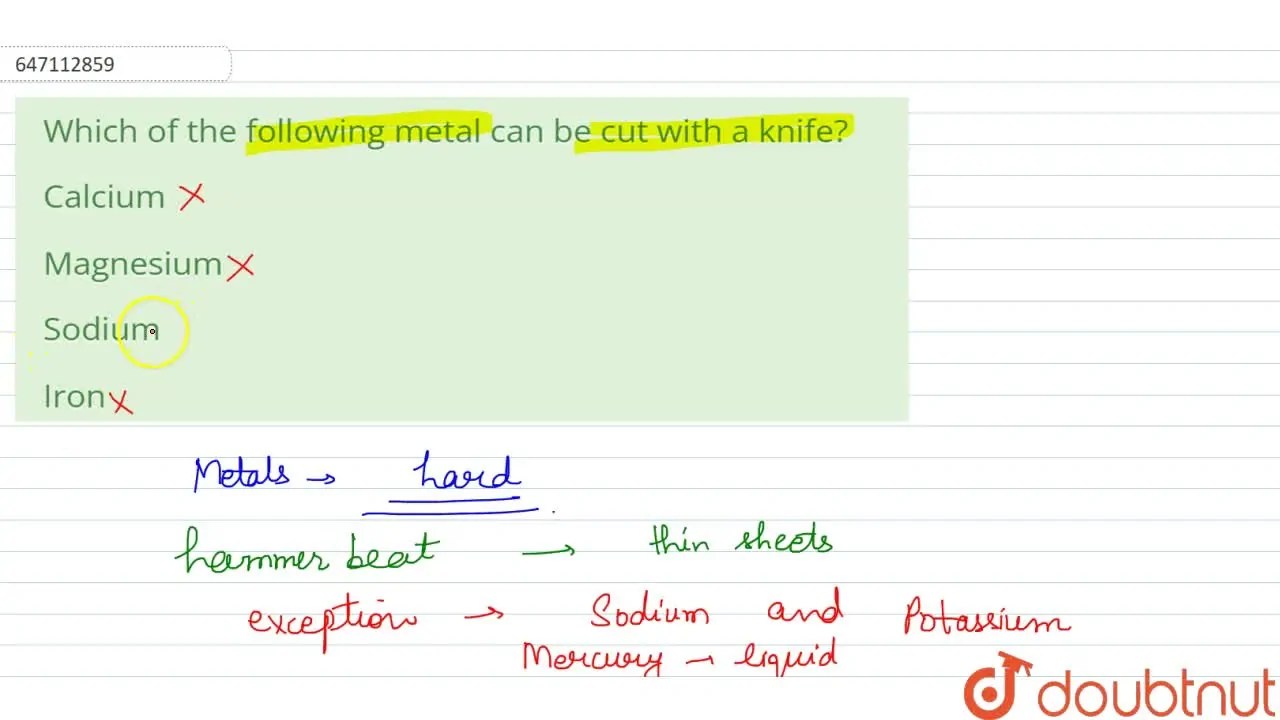 647112859
Which of the following metal can be cut with a knife?
Calcium X
Magnesium X
Sodium
Iron X
Metals → hard
hammer beat → thin sheets
exception → Sodium and Potassium
Mercury → liquid
doubtnut